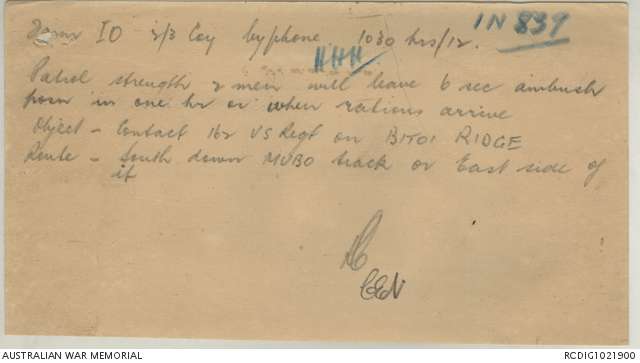 From IO 2/3 Coy by phone 1030 hrs/12. IN 839
HHH
Patrol strength 2 men will leave 6 sec ambush
posn in one hr or when rations arrive
Object - Contact 162 US Regt on BITOI RIDGE
Route - South down MUBO track or East side of
it
CEN
AUSTRALIAN WAR MEMORIAL
RCDIG1021900